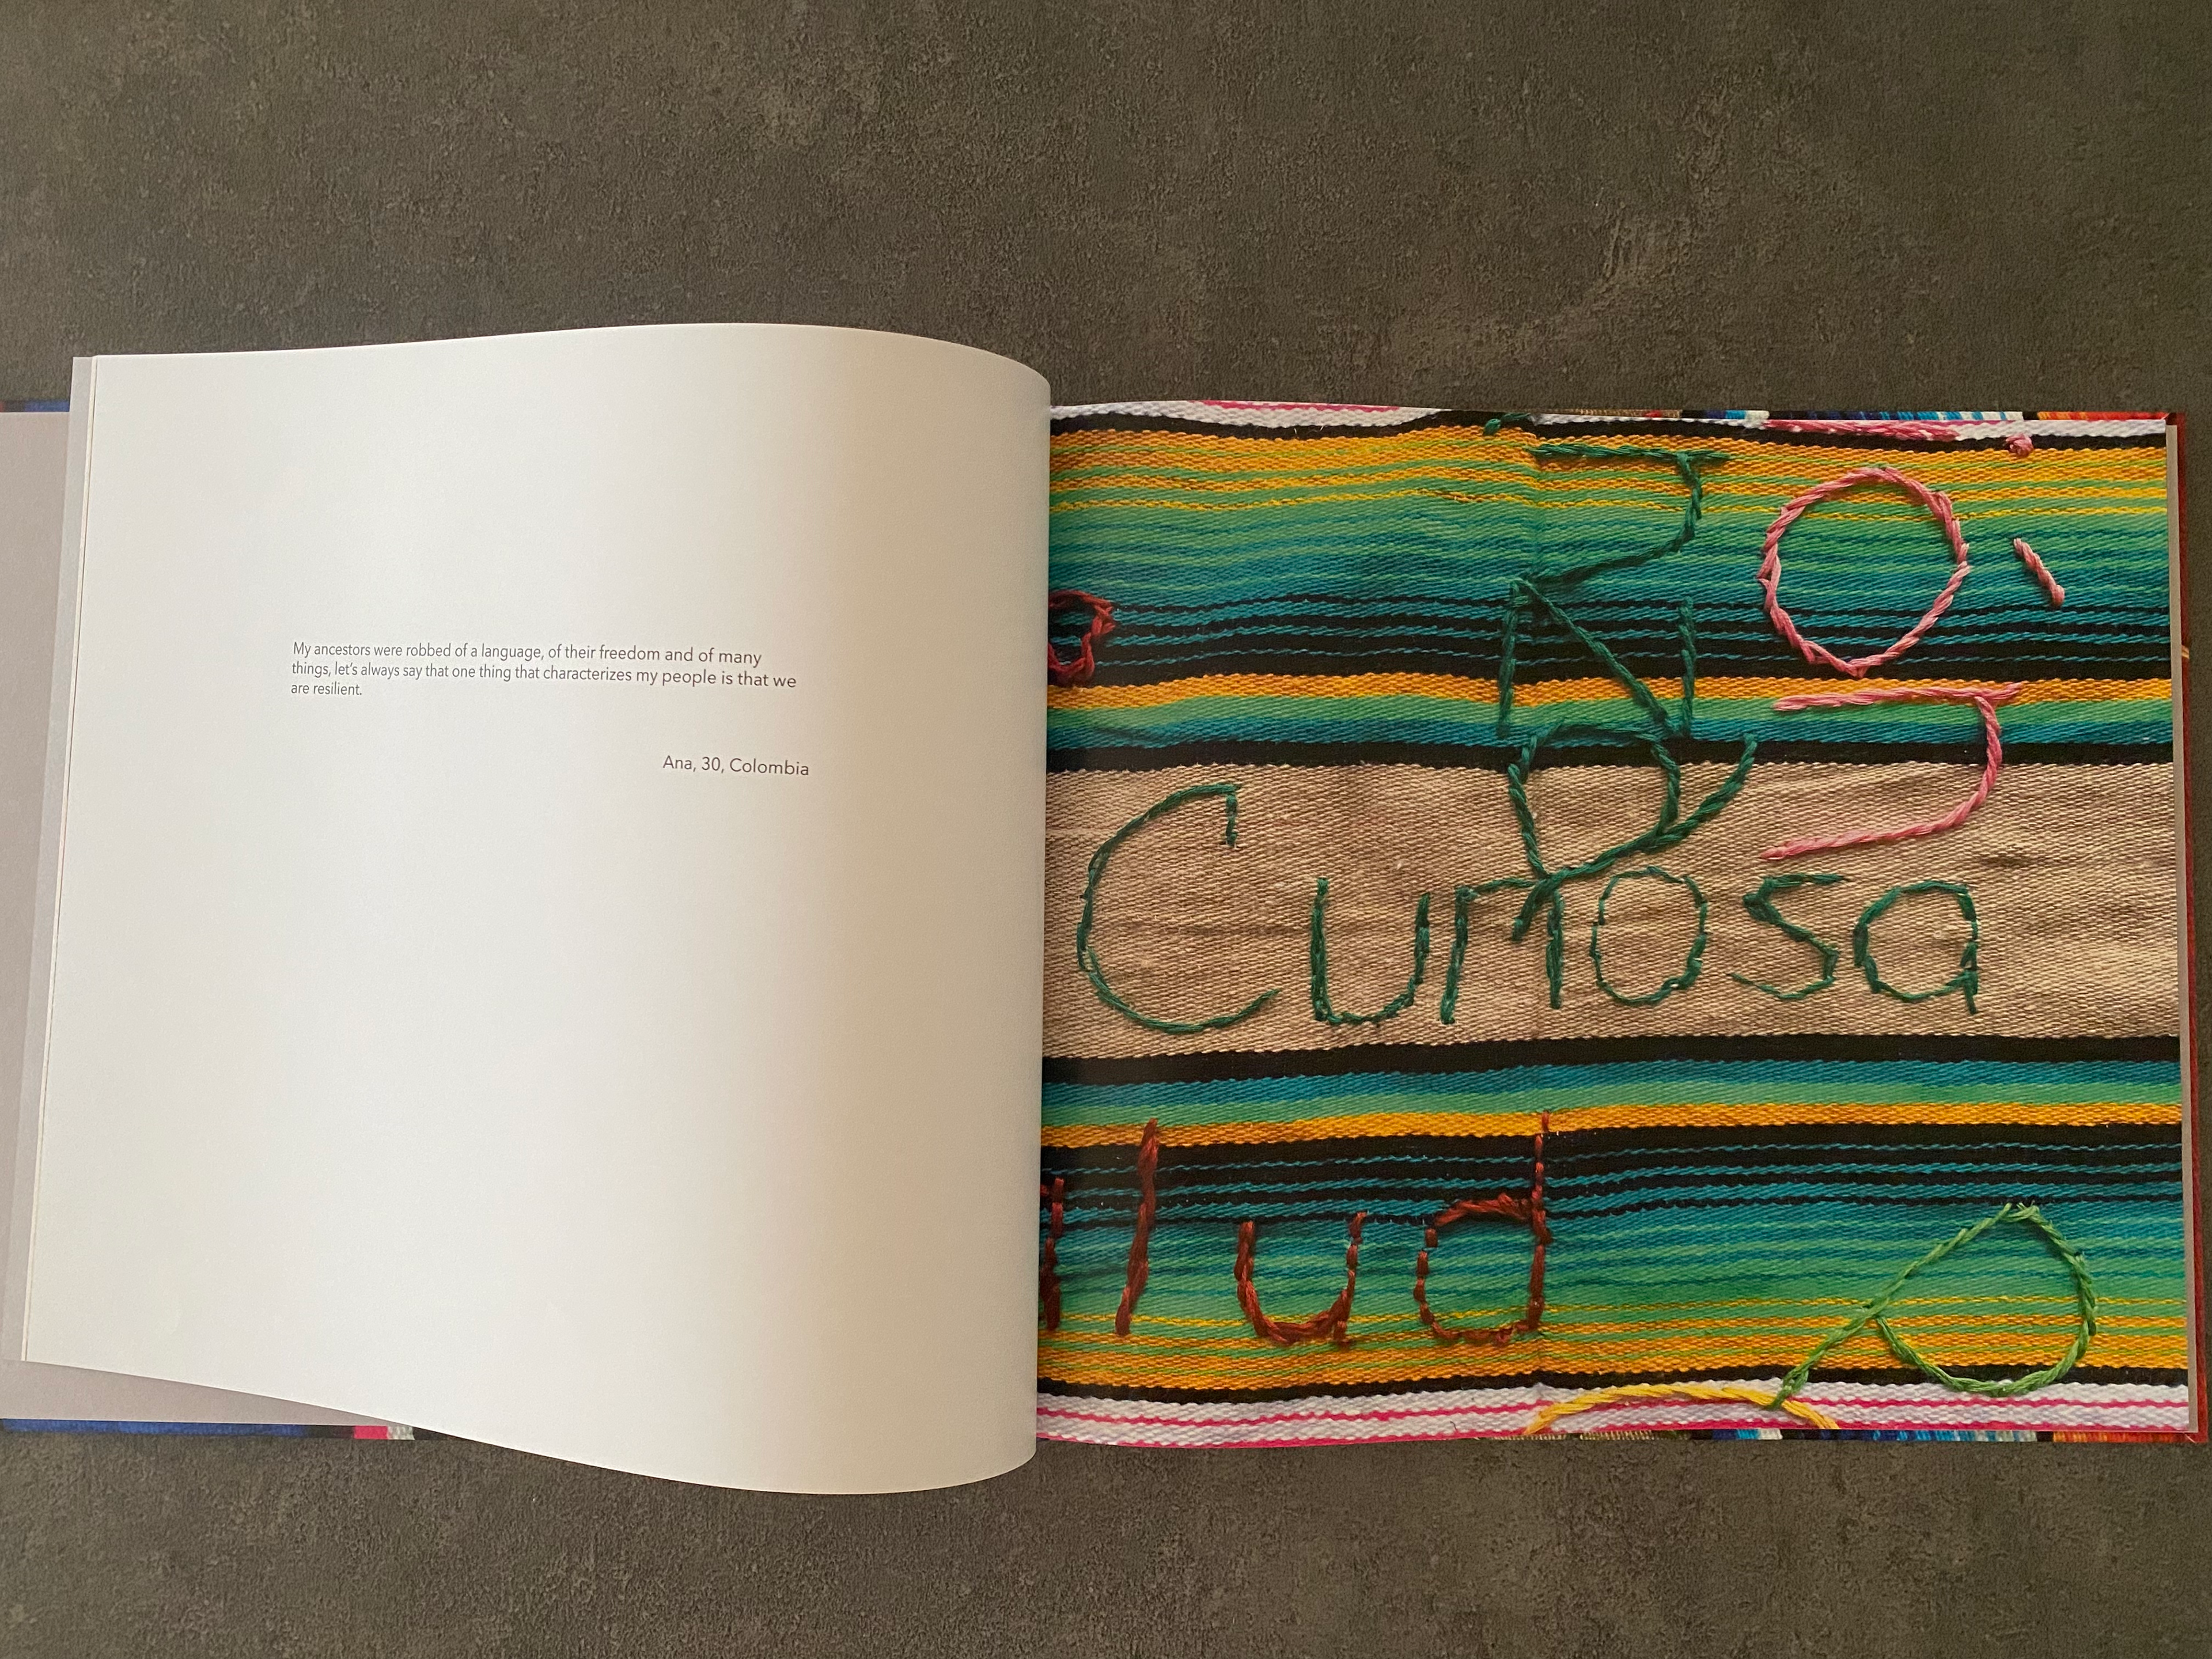 My ancestors were robbed of a language, of their freedom and of many
things, let's always say that one thing that characterizes my people is that we
are resilient.
Ana, 30, Colombia
Curiosa
alud